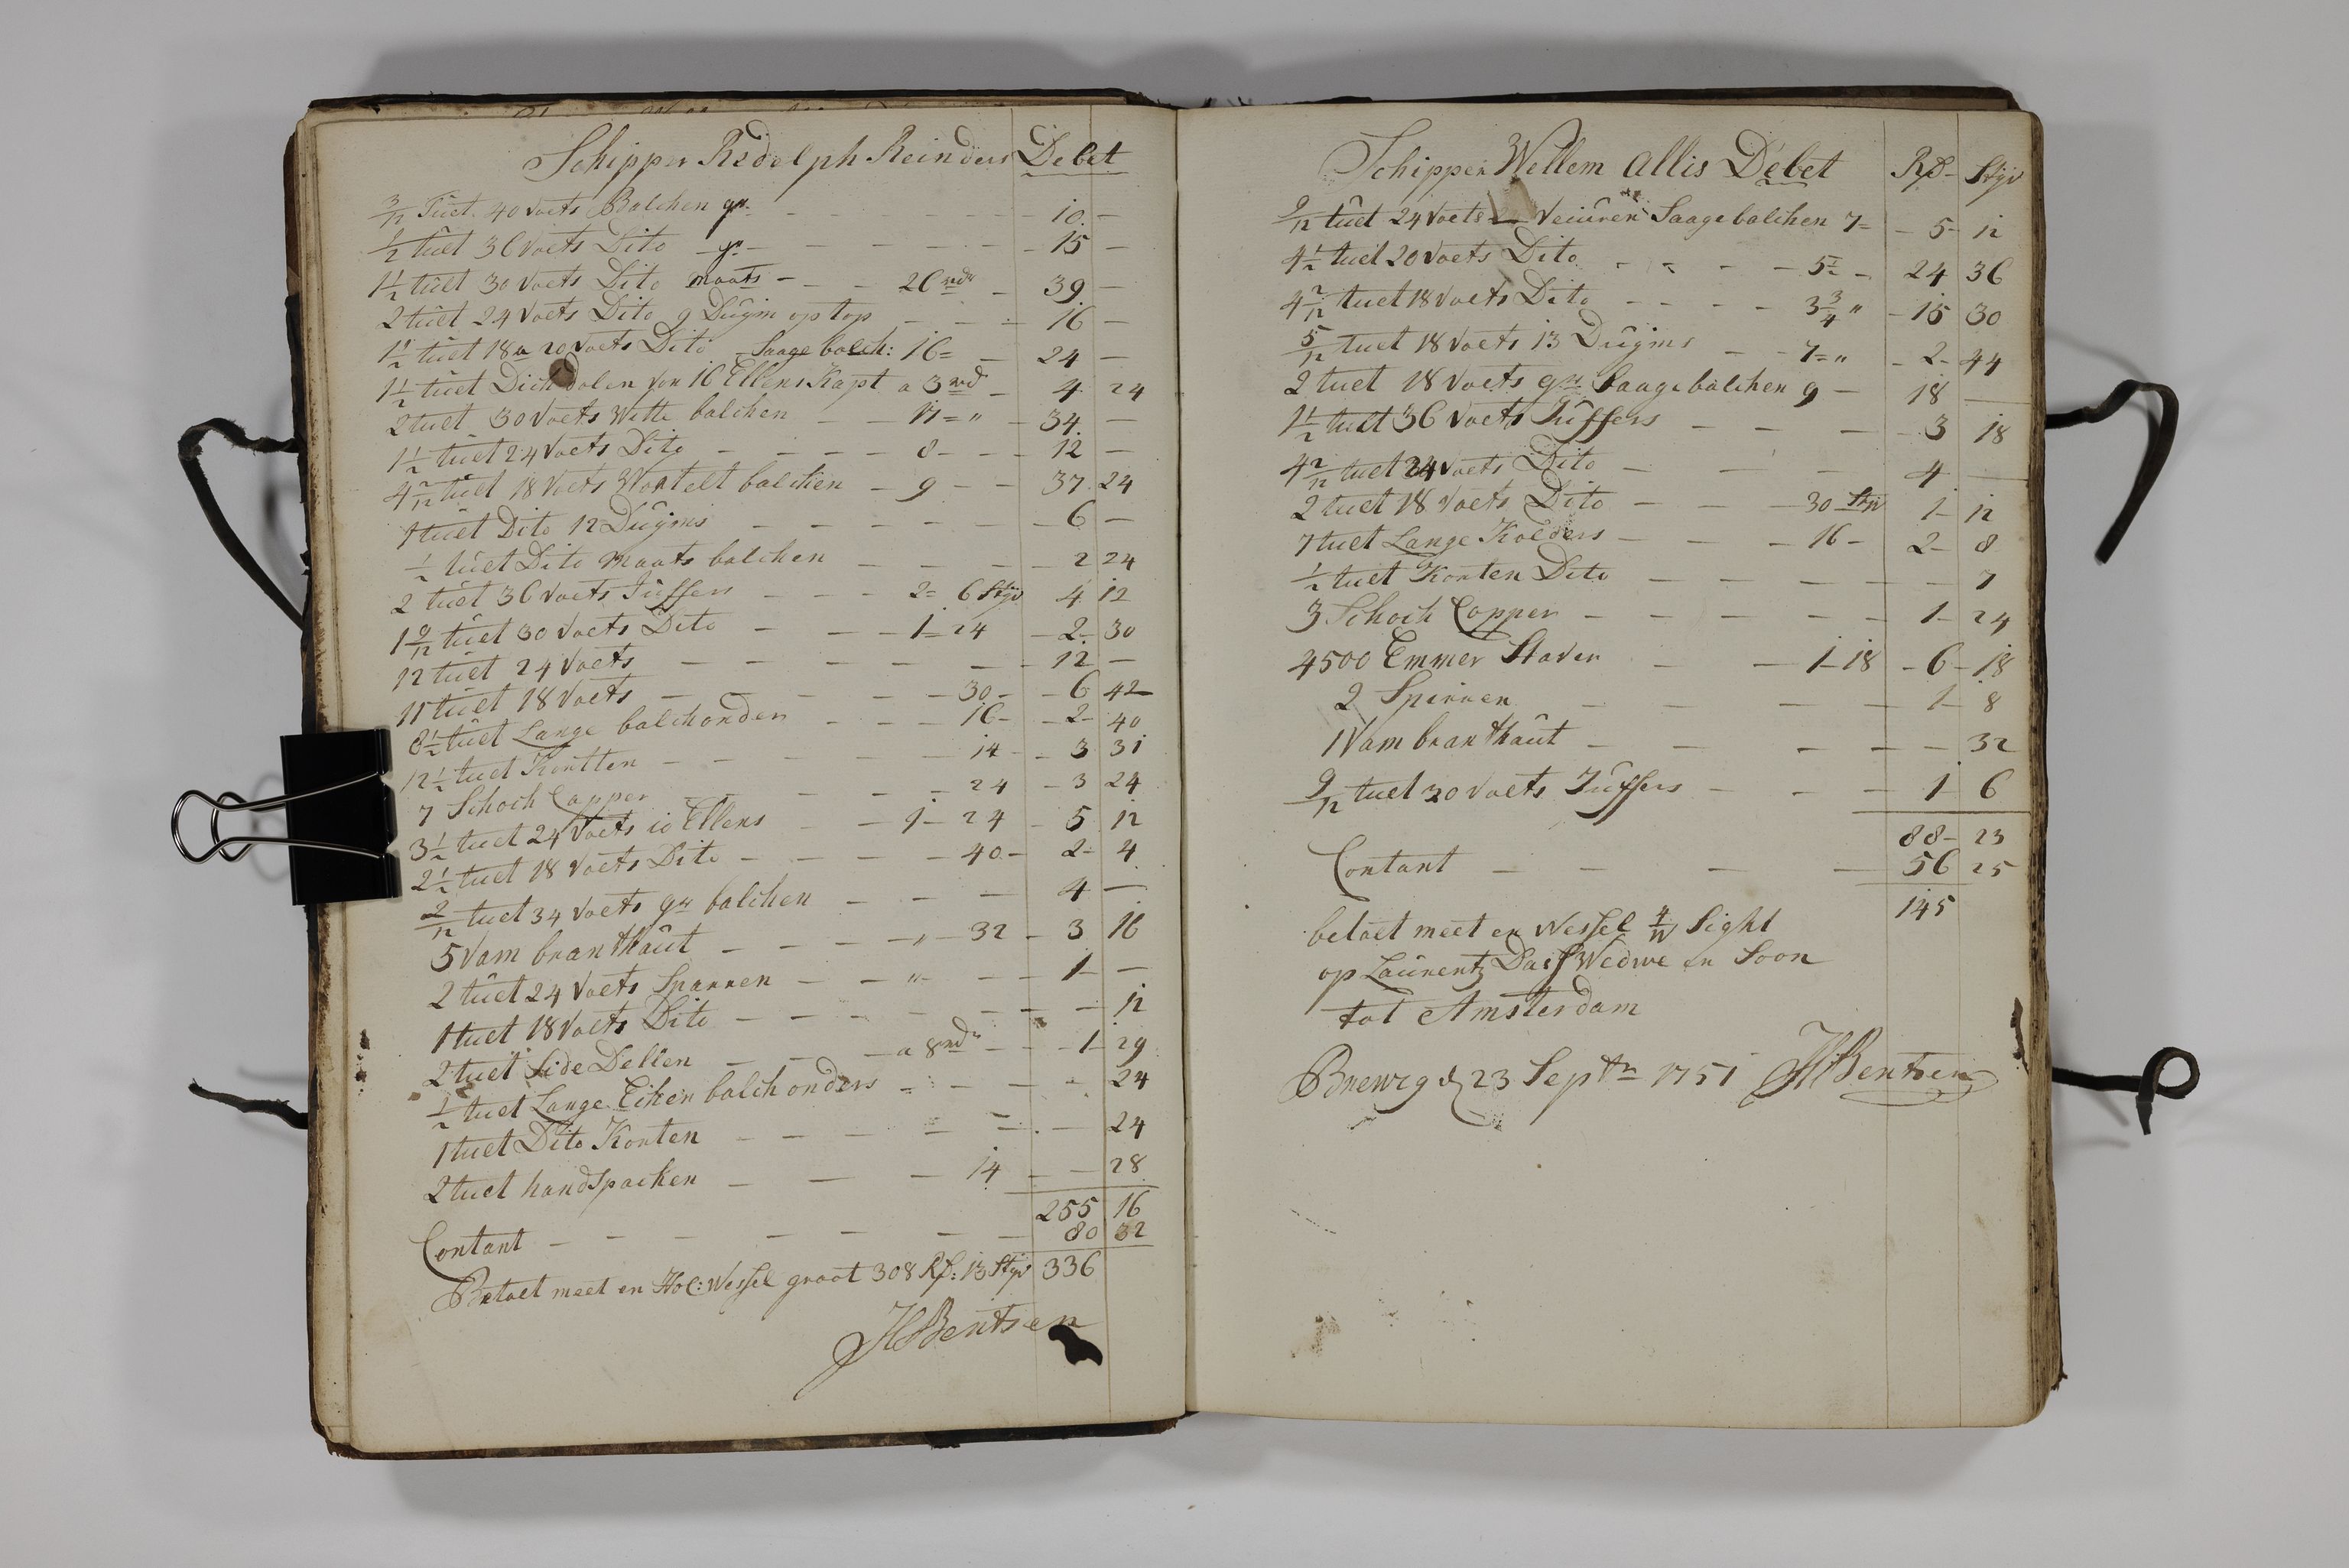 Schipper Redolph Reinders Debet
3/12 Tuct. 40 Voets Balchen gr. 10. –
1/2 tuct 36 Voets Dito gr 15 –
1 1/2 tuct 30 Voets Dito maats 26 rdr 39 –
2 tuct 24 Voets Dito 9 Duÿm op top 16 –
tuct 18 a 20 Voets Dito Saage balch: 16= 24 –
1 1/2 tuct Dich dolen von 16 Ellens Kapt a 3 rd 4. 24
2 tuct 30 Voets Witte balchen 17= " 34. –
1 1/2 tuct 24 Voets Dito 8 12 –
4 2/12 tuct 18 Voets Wortelt balchen 9 37. 24
1 tuct Dito 12 Duÿms 6 –
1/2 tuct Dito Maats balchen 2 24
2 tuct 36 Voets Juffers 2= 6 Styv 4. 12
1 9/12 tuct 30 Voets Dito 1– 24 2– 30
12 tuct 24 Voets 12 –
11 tuct 18 Voets 30– 6 42
8 1/2 tuct Lange balchonder 16– 2– 40
12 1/2 tuct Kontten 14 3 31
7 Schoch Copper 24 3 24
3 1/2 tuct 24 Voets 10 Ellens 1– 24 5 12
2 1/2 tuct 18 Voets Dito 40– 2– 4
2/12 tuct 34 Voets gr balchen 4 –
5 Vam branthaut " 32 3 16
2 tuct 24 Voets Sparren " 1– –
1 tuct 18 Voets Dito 12
2 tuct Side Dellen a 8 rdr 1– 29
1/2 tuct Lange Eiken balchonders 24
1 tuct Dito Konten 24
2 tuct handspacken 14 28
255 16
Contant 80 32
Betaet meet en Hol: Wessel groot 308 Rß: 13 Styv 336
HBentsen
Schipper Wellem Allis Debet Rß– Styv
9/12 tuct 24 Voets Veiuren Saage balchen 7= 5– 12
4 1/2 tuct 20 Voets Dito 5 1/2 24 36
4 2/12 tuct 18 Voets Dito 3 3/4 " 15 30
5/12 tuct 18 Voets 13 Duÿms 7= " 2– 44
2 tuct 18 Voets gr Saage balchen 9 18 –
1 1/2 tuct 36 Voets Juffers 3 18
4 2/12 tuct 24 Voets Dito 4 –
2 tuct 18 Voets Dito 30 Styv 1– 12
7 tuct Lange Kolders 16– 2– 8
1/2 tuct Konten Dito 7
3 Schoch Copper 1– 24
4500 Emmer Staven 1–18 6– 18
2 Spirren 1– 8
1 Vam branthaut 32
9/12 tuct 30 Voets Juffers 1– 6
88– 23
Contant 56 25
145
betaet meet en Wessel Sight
op Laurentz Dass Wedwe en Soon
tot Amsterdam
Brewig d 23 Septr 1751 HBentsen